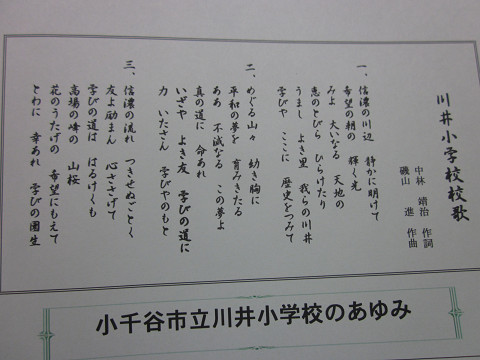 川井小学校校歌
中林 靖治 作詞
磯山 進 作曲
一、信濃の川辺 静かに明けて
希望の朝の 輝く光
みよ 大いなる 天地の
恵のとびら ひらけたり
うまし よき里 我らの川井
学びや ここに 歴史をつみて
二、めぐる山々 幼き胸に
平和の夢を 育みきたる
ああ 不滅なる この夢よ
真の道に 命あれ
いざや よき友 学びの道に
力 いたさん 学びやのもと
三、信濃の流れ つきせぬごとく
友よ励まん 心ささげて
学びの道は はるけくも
高場の峰の 山桜
花のうたげの 希望にもえて
とわに 幸あれ 学びの園生
小千谷市立川井小学校のあゆみ